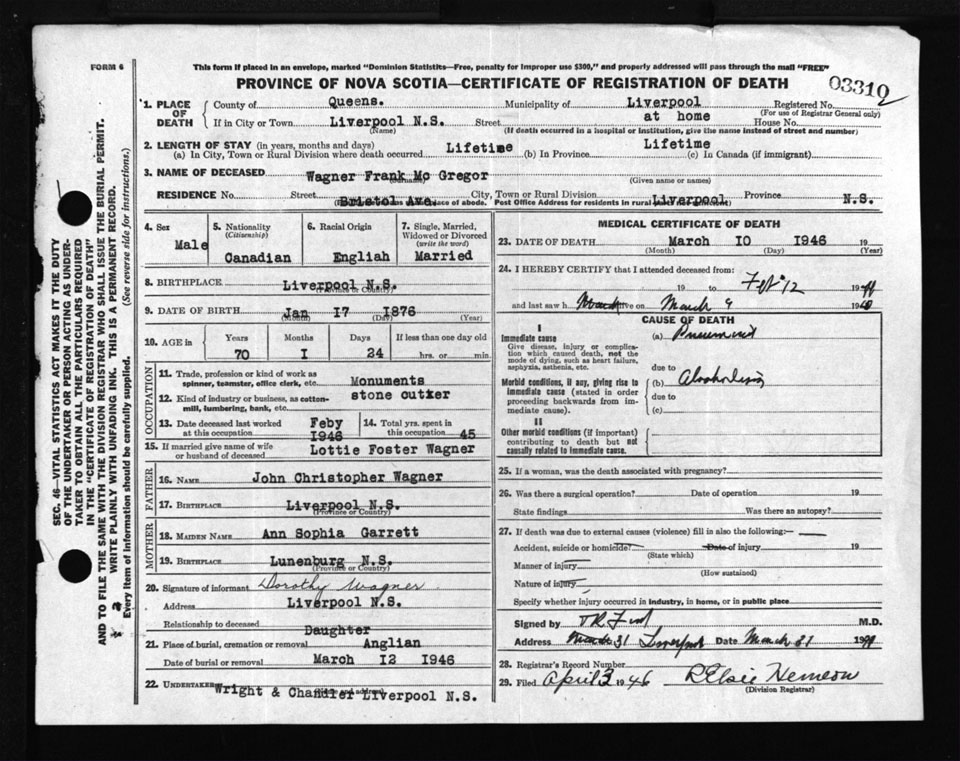 FORM 6
This form if placed in an envelope, marked "Dominion Statistics—Free, penalty for improper use $300," and properly addressed will pass through the mail "FREE"
PROVINCE OF NOVA SCOTIA—CERTIFICATE OF REGISTRATION OF DEATH
03310
1. PLACE OF DEATH
County of Queens. Municipality of Liverpool Registered No.
(For use of Registrar General only)
If in City or Town Liverpool N.S. Street at home House No.
(Name) (If death occurred in a hospital or institution, give the name instead of street and number)
2. LENGTH OF STAY (in years, months and days)
(a) In City, Town or Rural Division where death occurred Lifetime (b) In Province Lifetime (c) In Canada (if immigrant)
3. NAME OF DECEASED Wagner Frank Mc Gregor
(Surname) (Given name or names)
RESIDENCE No. Street Bristol Ave. City, Town or Rural Division Liverpool Province N.S.
place of abode. Post Office Address for residents in rural
4. Sex Male
5. Nationality (Citizenship) Canadian
6. Racial Origin Engliah
7. Single, Married, Widowed or Divorced (write the word) Married
8. BIRTHPLACE Liverpool N.S.
(Province or Country)
9. DATE OF BIRTH Jan I7 I876
(Month) (Day) (Year)
10. AGE in Years Months Days If less than one day old
70 I 24 hrs. or min.
OCCUPATION
11. Trade, profession or kind of work as spinner, teamster, office clerk, etc. Monuments
12. Kind of industry or business, as cotton-mill, lumbering, bank, etc. stone cutter
13. Date deceased last worked at this occupation Feby I946
14. Total yrs. spent in this occupation 45
15. If married give name of wife or husband of deceased Lottie Foster Wagner
FATHER
16. NAME John Christopher Wagner
17. BIRTHPLACE Liverpool N.S.
(Province or Country)
MOTHER
18. MAIDEN NAME Ann Sophia Garrett
19. BIRTHPLACE Lunenburg N.S.
(Province or Country)
20. Signature of informant Dorothy Wagner
Address Liverpool N.S.
Relationship to deceased Daughter
21. Place of burial, cremation or removal Anglian
Date of burial or removal March I2 I946
22. UNDERTAKER Wright & Chandler Liverpool N.S.
MEDICAL CERTIFICATE OF DEATH
23. DATE OF DEATH March IO I946 19
(Month) (Day) (Year)
24. I HEREBY CERTIFY that I attended deceased from:
19 to 12 19
and last saw h alive on March 9 19
CAUSE OF DEATH
I
Immediate cause
Give disease, injury or complication which caused death, not the mode of dying, such as heart failure, asphyxia, asthenia, etc.
(a)
due to
Morbid conditions, if any, giving rise to immediate cause (stated in order proceeding backwards from immediate cause).
(b) Alcoholism
due to
(c)
II
Other morbid conditions (if important) contributing to death but not causally related to immediate cause.
25. If a woman, was the death associated with pregnancy?
26. Was there a surgical operation? Date of operation 19
State findings Was there an autopsy?
27. If death was due to external causes (violence) fill in also the following:—
Accident, suicide or homicide? Date of injury 19
(State which)
Manner of injury
(How sustained)
Nature of injury
Specify whether injury occurred in industry, in home, or in public place
Signed by M.D.
Address Liverpool Date March 19
28. Registrar's Record Number
29. Filed April 3 1946 Elsie Hemeon
(Division Registrar)
SEC. 46—VITAL STATISTICS ACT MAKES IT THE DUTY
OF THE UNDERTAKER OR PERSON ACTING AS UNDER-
TAKER TO OBTAIN ALL THE PARTICULARS REQUIRED
IN THE "CERTIFICATE OF REGISTRATION OF DEATH"
AND TO FILE THE SAME WITH THE DIVISION REGISTRAR WHO SHALL ISSUE THE BURIAL PERMIT.
WRITE PLAINLY WITH UNFADING INK. THIS IS A PERMANENT RECORD.
Every item of information should be carefully supplied. (See reverse side for instructions.)